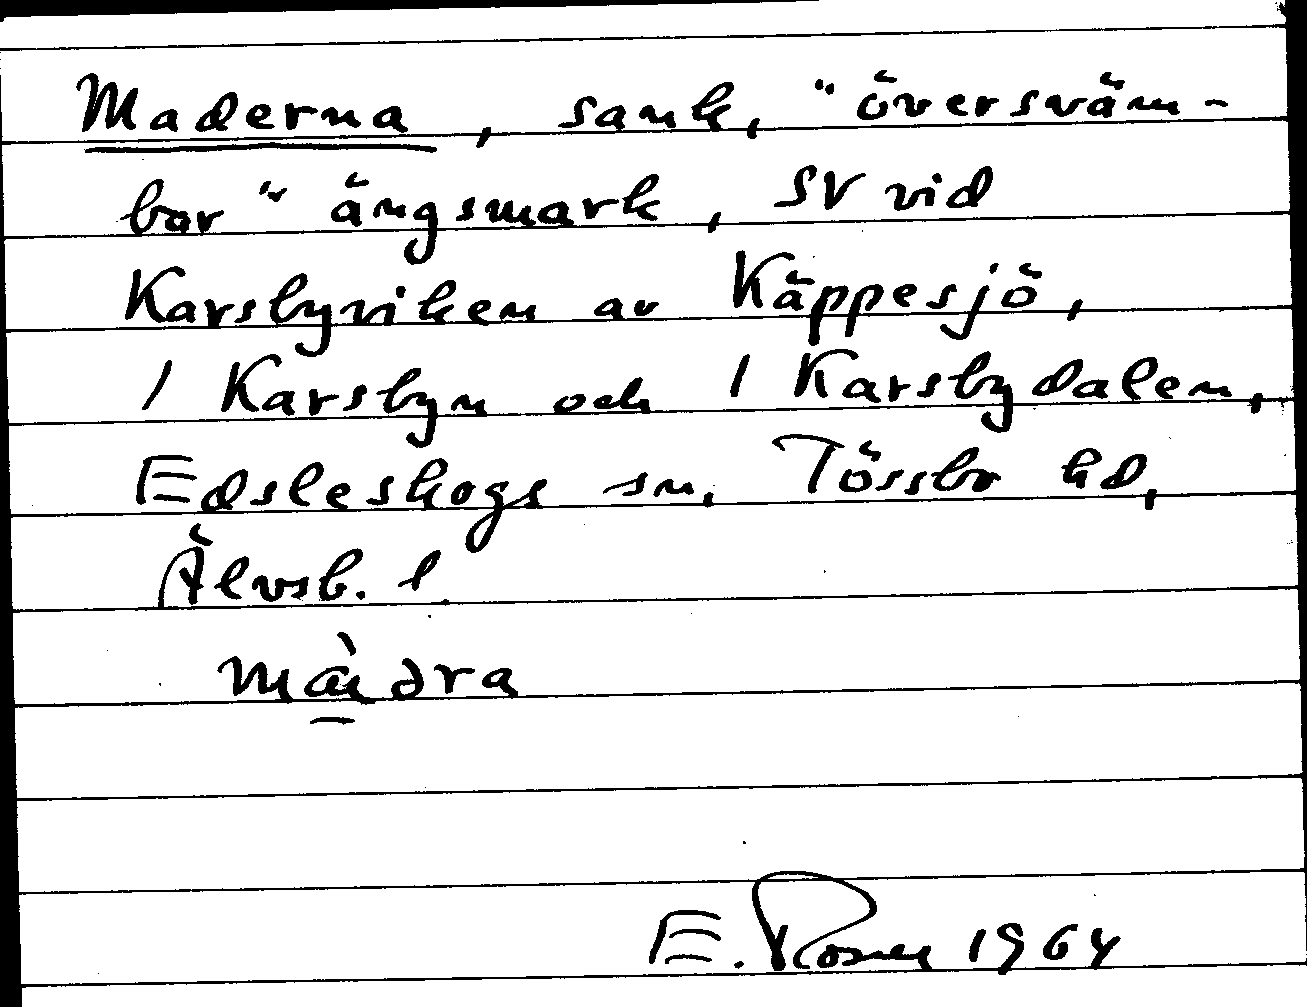 Maderna, sank, "översväm-
bar" ängsmark, SV vid
Karsbyviken av Käppesjö,
1 Karsbyn och 1 Karsbydalen,
Edsleskogs sn, Tössbo hd,
Älvsb. l.
E. Rosell 1964